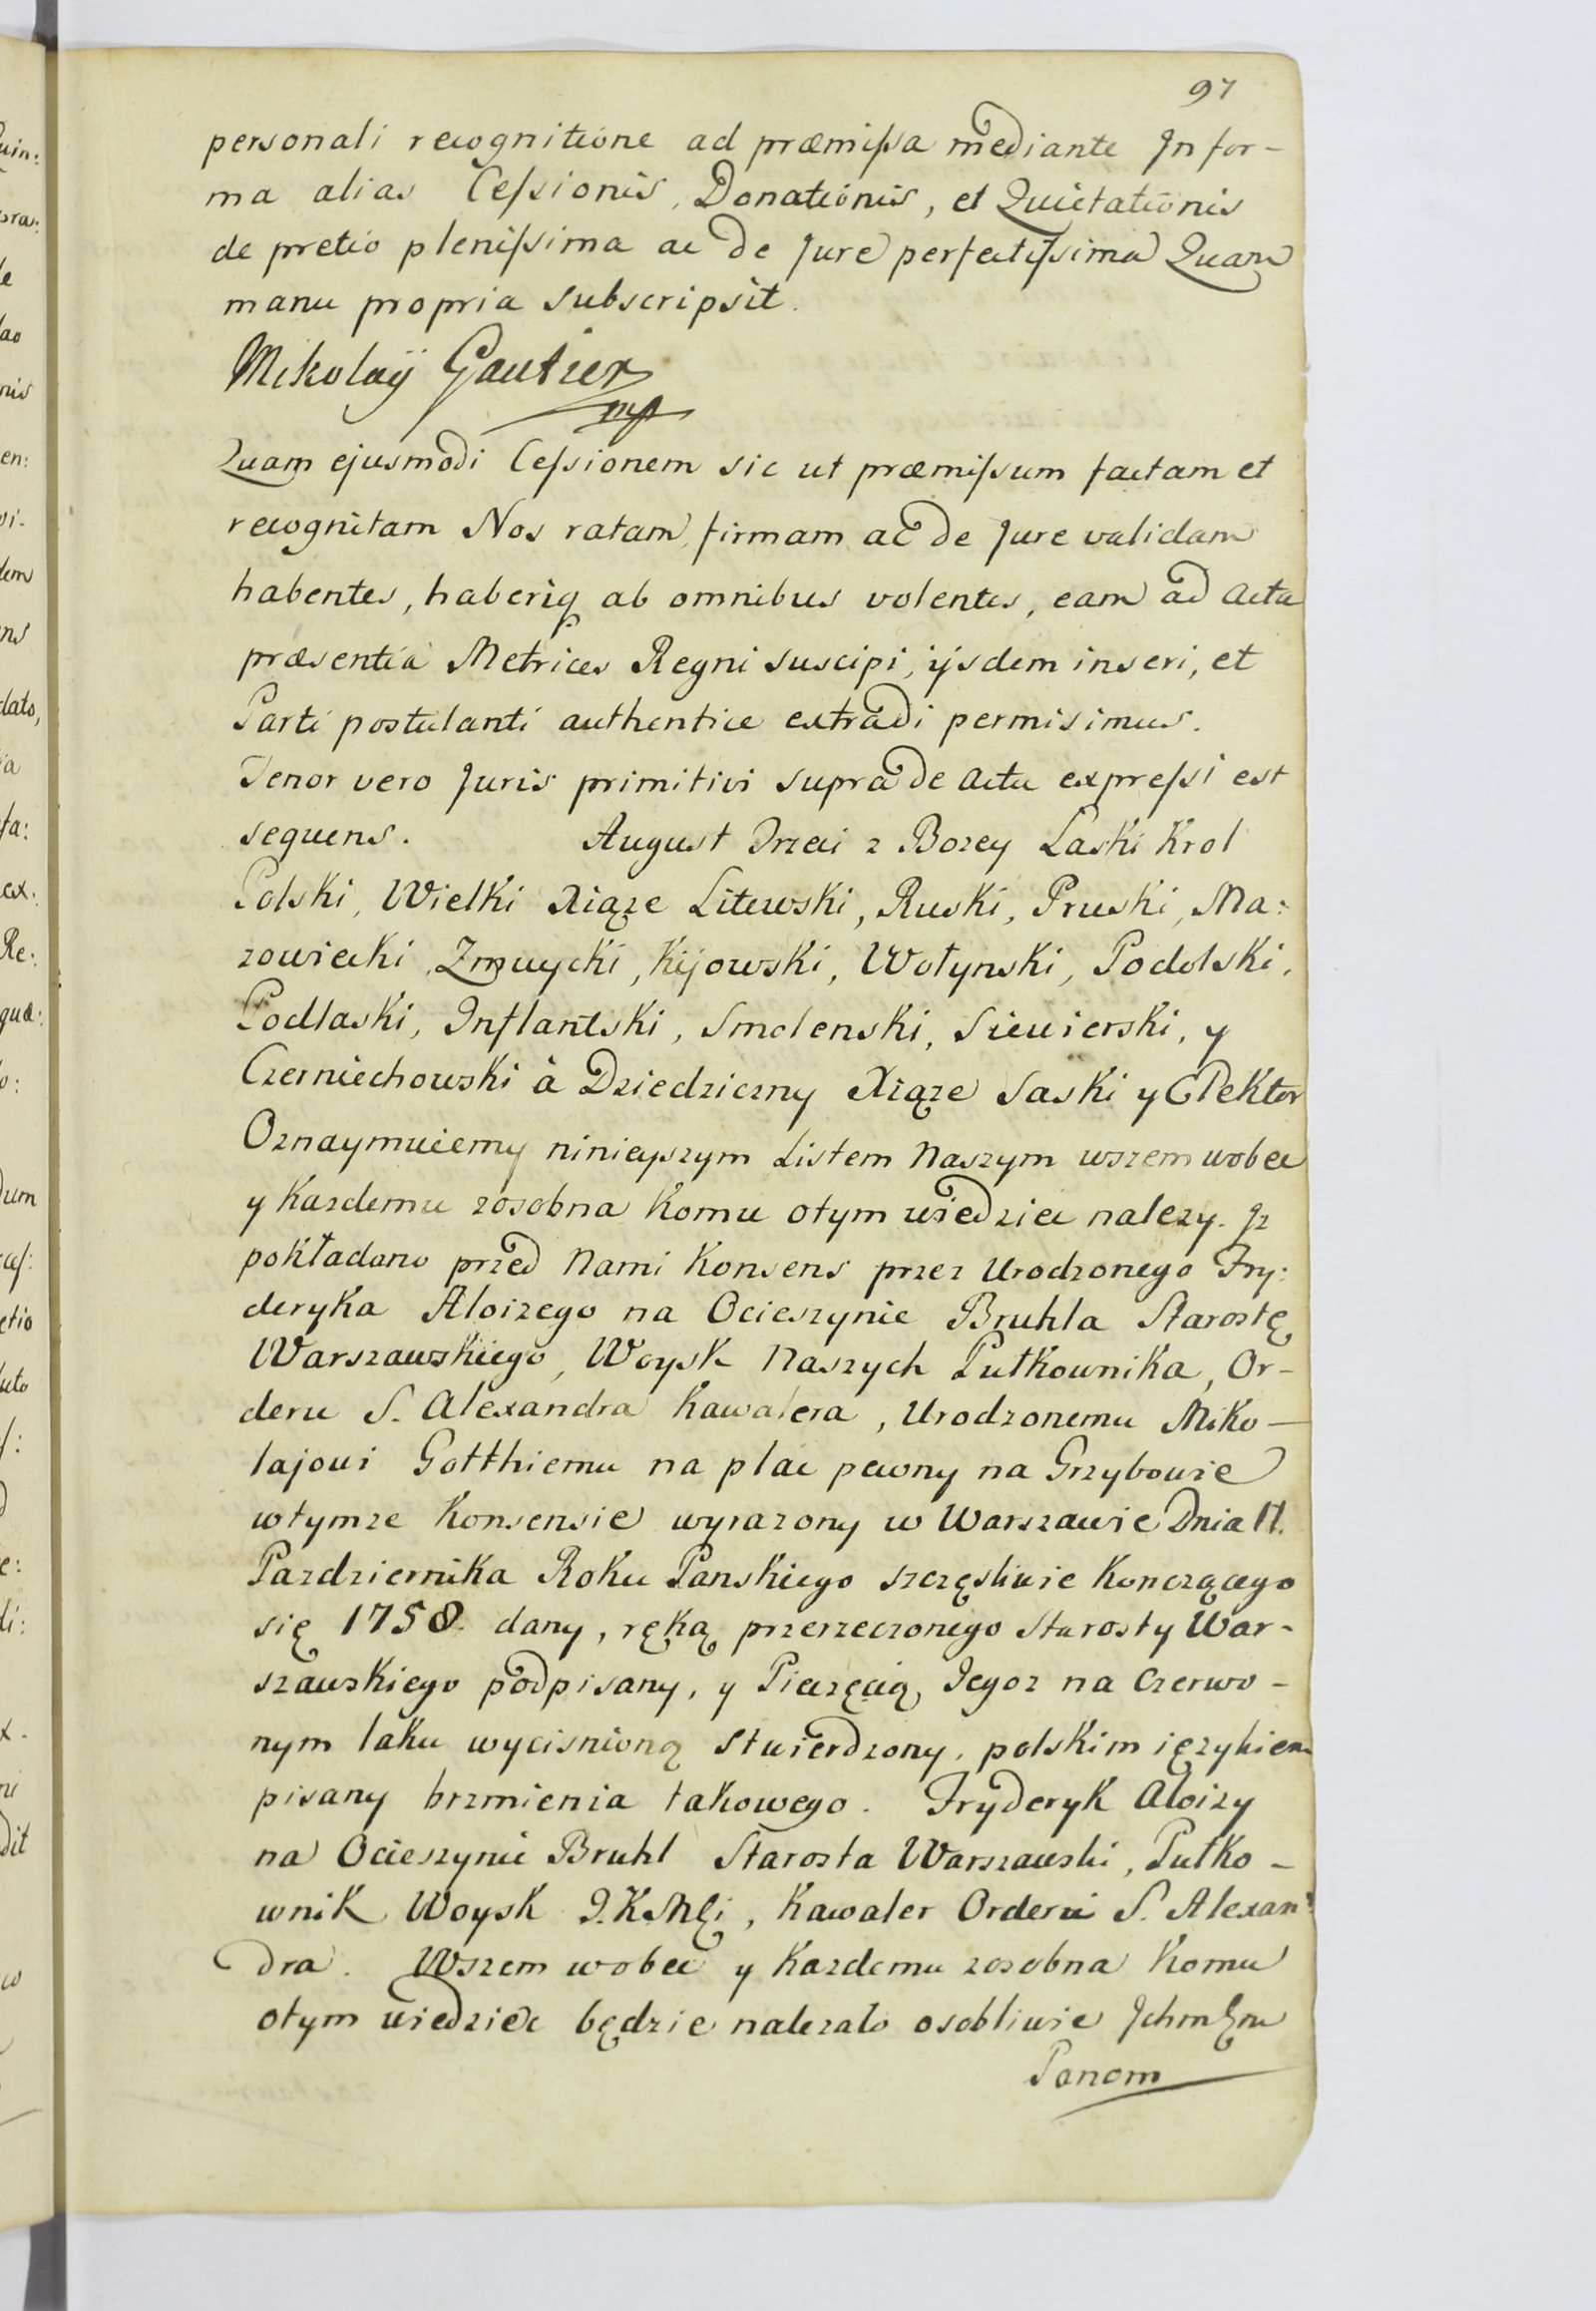 97
personali recognitione ad præmissa mediante In for-
ma alias Cessionis, Donationis, et Quietationis
de pretio plenissima ac de Jure perfectissima Quam
manu propria subscripsit.
Mikołaÿ Gautier
mp
Quam ejusmodi Cessionem sic ut præmissum factam et
recognitam Nos ratam, firmam ac de Jure validam
habentes, haberiq ab omnibus volentes, eam ad Acta
præsentia Metrices Regni suscipi, ijsdem inseri, et
Parti postulanti authentice extradi permisimus.
Tenor vero Juris primitivi supra de Actu expressi est
sequens. August Trzeci z Bozey Laski Krol
Polski, Wielki Xiąze Litewski, Ruski, Pruski, Ma:
zowiecki, Zmuycki, Kijowski, Wołynski, Podolski,
Podlaski, Inflantski, Smolenski, Siewierski, y
Czerniechowski à Dziedziczny Xiąze Saski y Elektor
Oznaymuiemy ninieyszym Listem Naszym wszem wobec
y kazdemu zosobna komu otym wiedziec nalezy. Jz
pokładano przed Nami Konsens przez Urodzonego Fry:
deryka Aloizego na Ocieszynie Bruhla Starostę
Warszawskiego, Woysk Naszych Pułkownika, Or-
deru S. Alexandra Kawalera, Urodzonemu Miko-
łajowi Gotthiemu na plac pewny na Grzybowie
wtymze Konsensie wyrazony w Warszawie Dnia 17.
Pazdziernika Roku Panskiego szczęsliwie konczącego
się 1758. dany, ręką przerzeczonego Starosty War-
szawskiego podpisany, y Pieczęcią Jegoz na czerwo-
nym laku wycisnioną stwierdzony, polskim ięzykiem
pisany brzmienia takowego. Fryderyk Aloizy
na Ocieszynie Bruhl Starosta Warszawski, Pułko-
wnik Woysk J.K.Mci, Kawaler Orderu S. Alexan:
dra. Wszem wobec y kazdemu zosobna komu
otym wiedziec będzie nalezało osobliwie Jchmęm
Panom